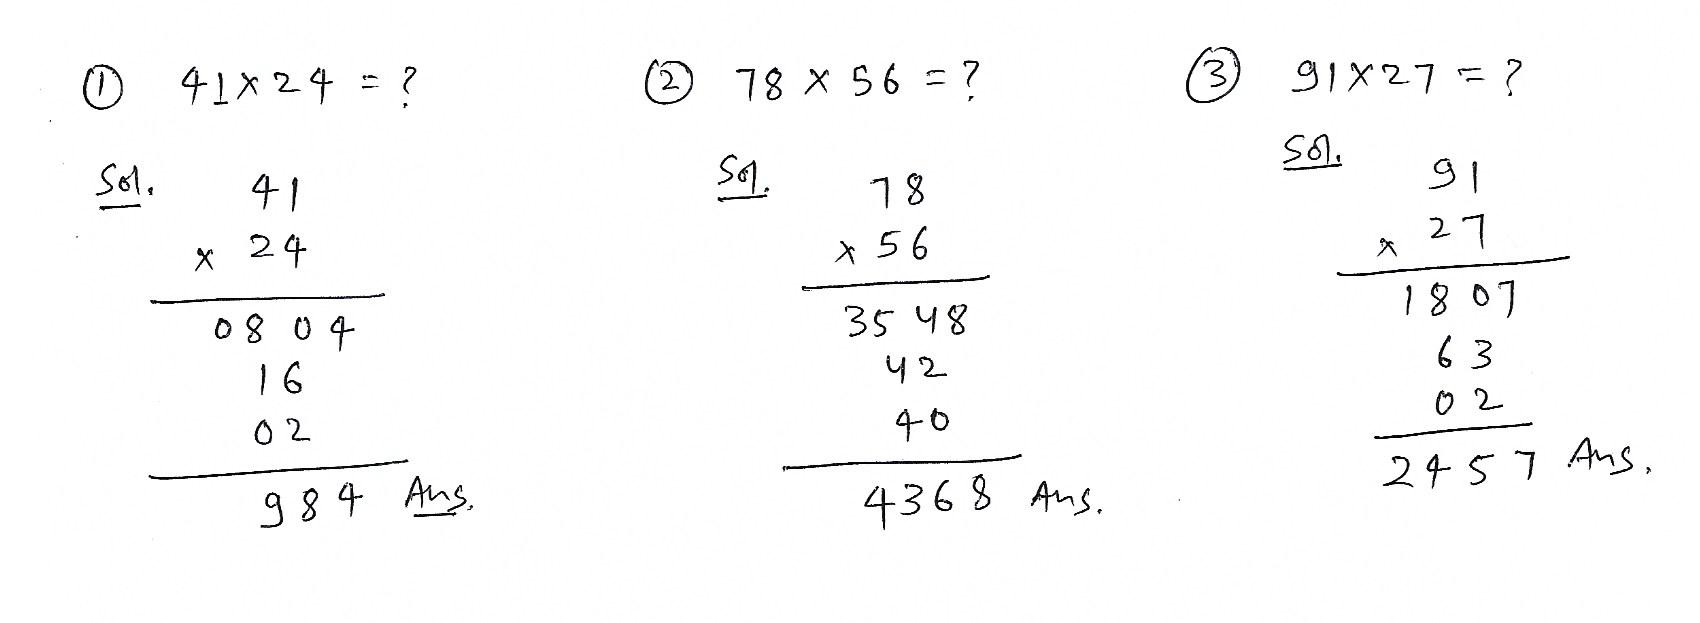 ① 41 × 24 = ?
Sol.
41
× 24
08 04
16
02
984 Ans.
② 78 × 56 = ?
Sol.
78
× 56
35 48
42
40
4368 Ans.
③ 91 × 27 = ?
Sol.
91
× 27
18 07
63
02
2457 Ans.